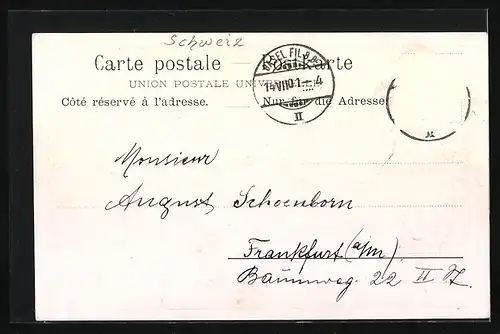 Schweiz
Carte postale — Postkarte
UNION POSTALE UNIVERSELLE
Côté réservé à l'adresse. Nur für die Adresse.
BASEL FIL.
14 VII 01 4
II
Monsieur
August Schoenborn
Frankfurt (a/m).
Baumweg 22 II